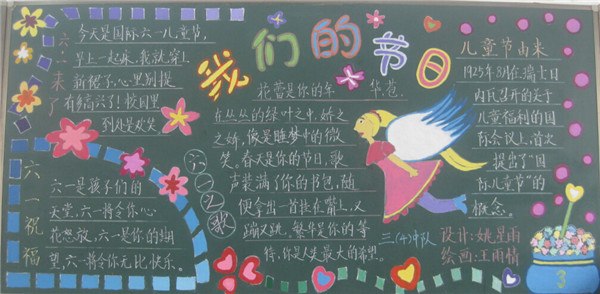 我们的节日
六一来了
今天是国际六一儿童节,
早上一起床,我就穿上
新裙子,心里别提
有多高兴了!校园里
到处是欢笑
六一祝福
六一是孩子们的
天堂,六一将令你心
花怒放,六一是你的期
望,六一将令你无比快乐。
六一之歌
花蕾是你的年华,总
在丛丛的绿叶之中,娇之
之娇,像是睡梦中的微
笑。春天是你的节日,歌
声装满了你的书包,随
便拿出一首挂在嘴上,又
蹦又跳,繁华是你的等
待,你是人类最大的希望。
儿童节由来
1925年8月在瑞士日
内瓦召开的关于
儿童福利的国
际会议上,首次
提出了"国
际儿童节"的
概念。
三(4)中队
设计:姚星雨
绘画:王雨情
3